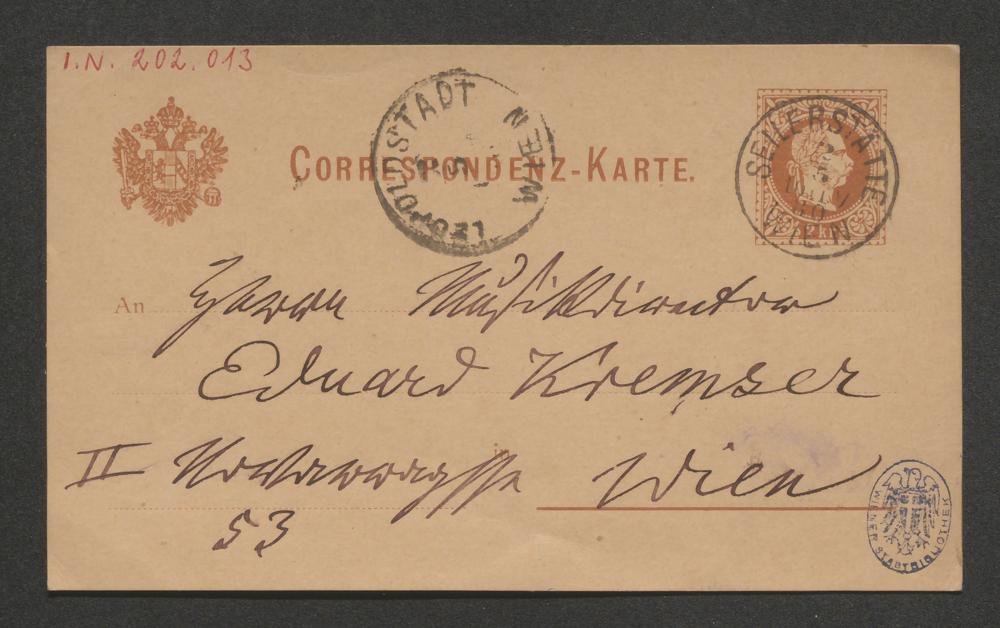 I.N. 202.013
CORRESPONDENZ-KARTE.
LEOPOLDSTADT WIEN
SEILERSTÄTTE WIEN
2 kr
An Herrn Musikdirector
Eduard Kremser
in
II Novaragasse Wien
53
WIENER STADTBIBLIOTHEK